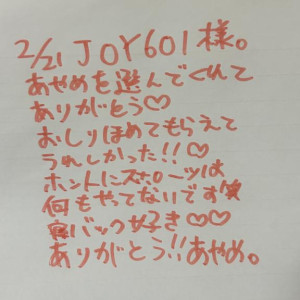 2/21 JOY601様。
あやめを選んでくれて
ありがとう♡
おしりほめてもらえて
うれしかった!!♡
ホントにスポーツは
何もやってないです笑
寝バック好き♡♡
ありがとう!!あやめ。